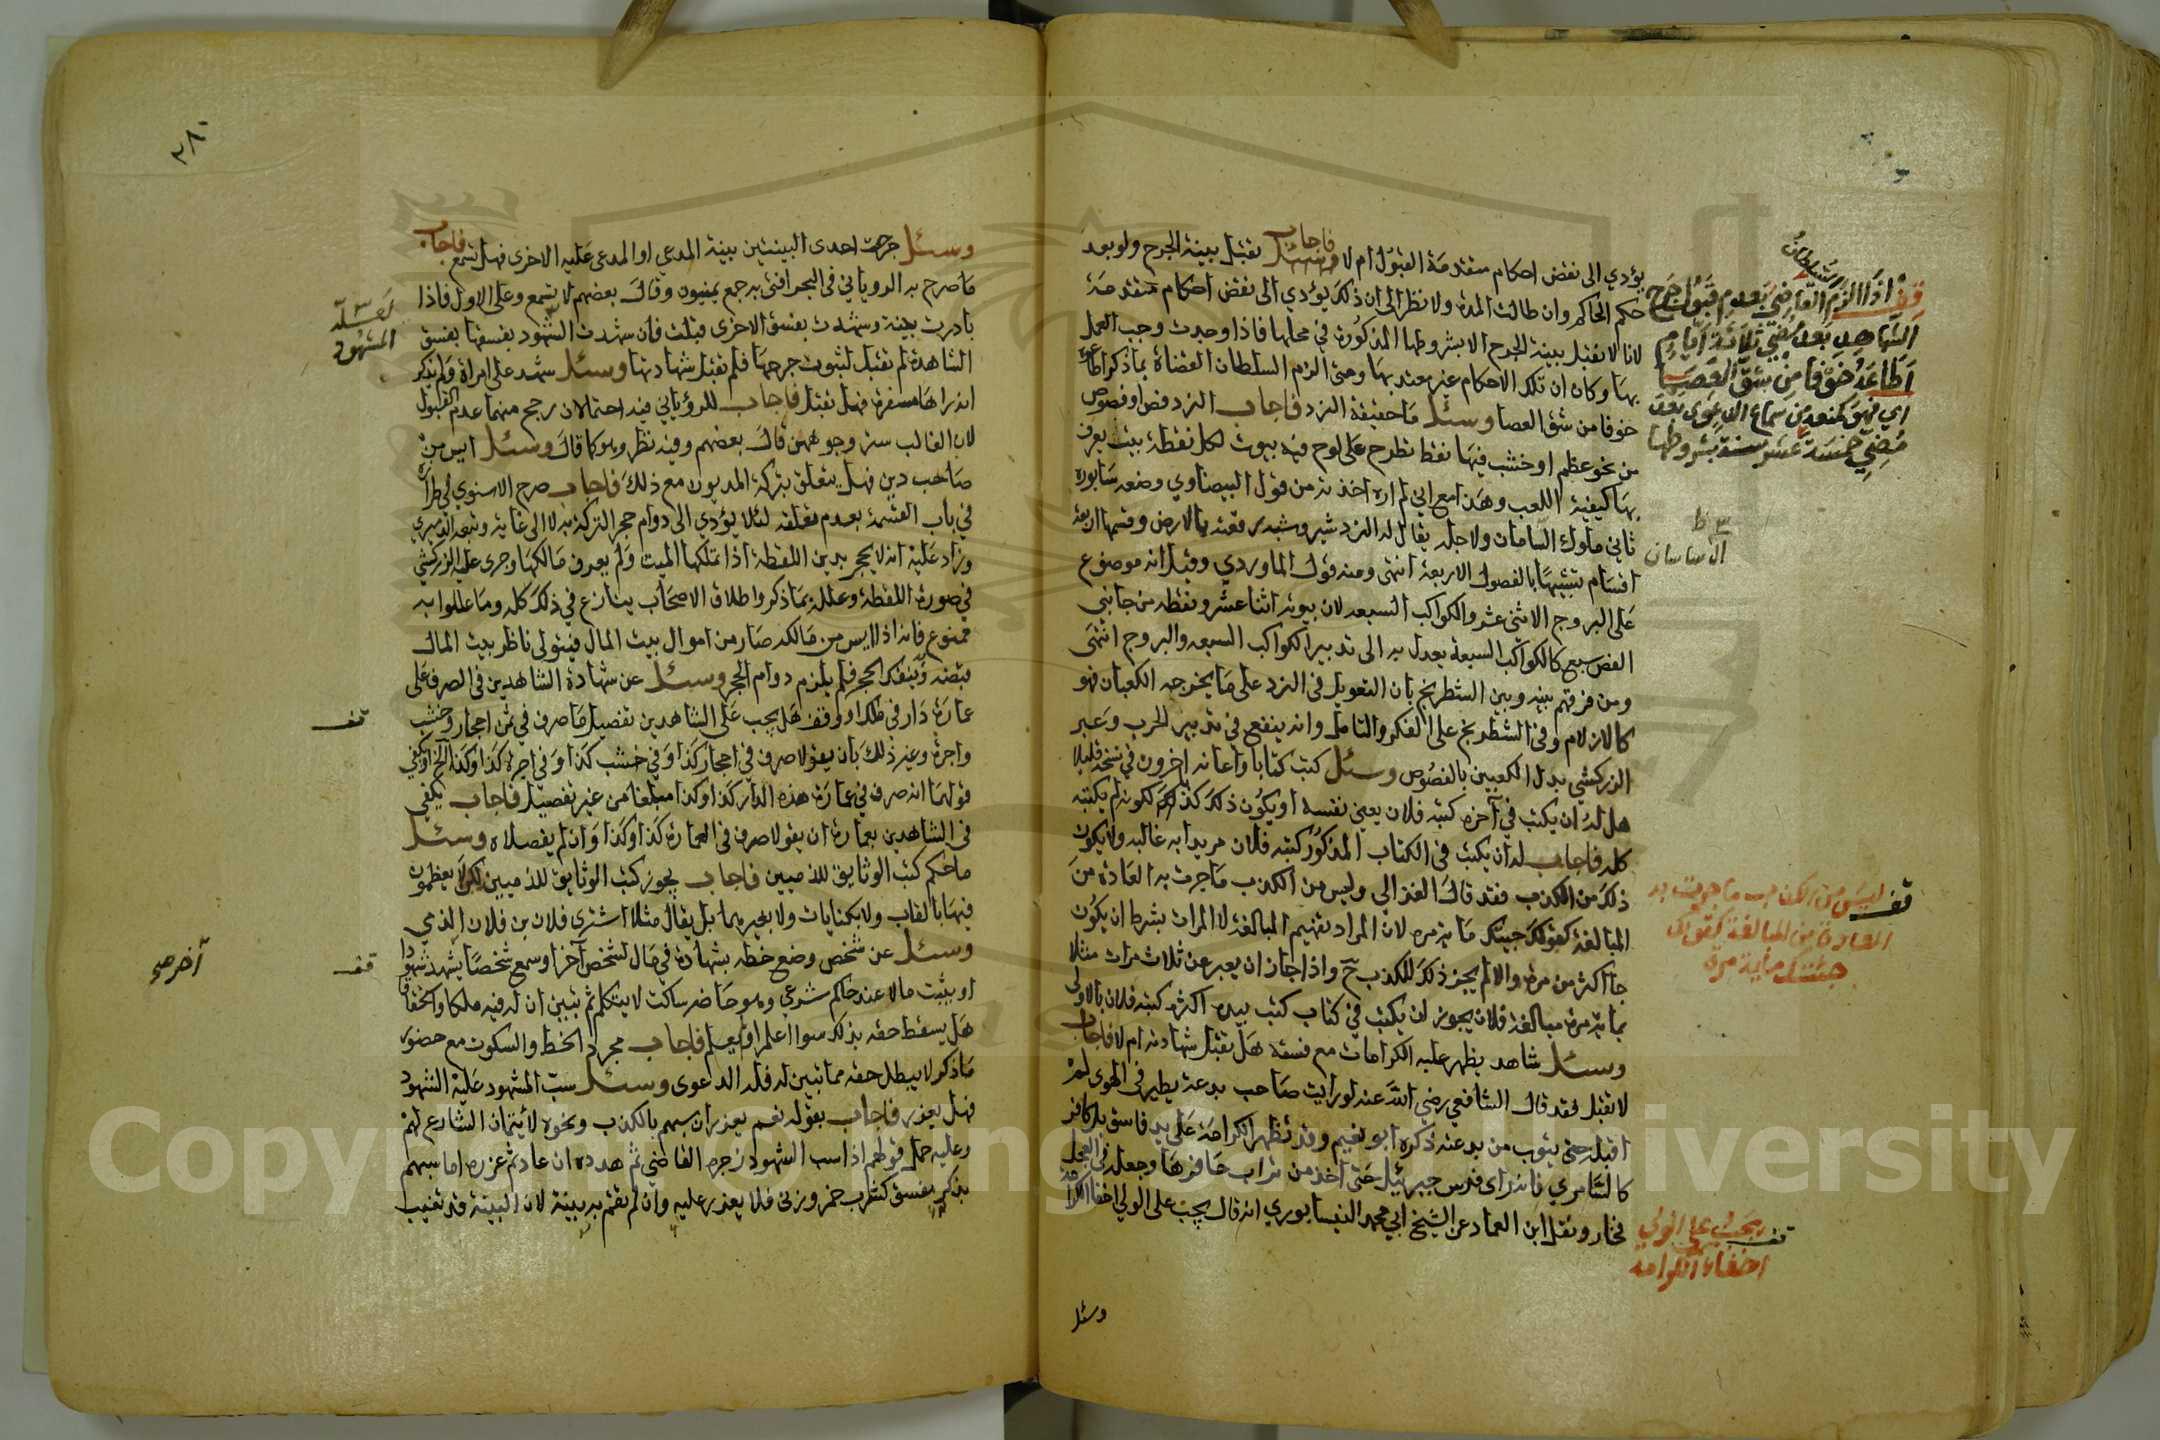 يؤدي الى نقض احكام متقدمة القبول ام لا فاجاب تقبل بينة الجرح ولو بعد
حكم الحاكم وان طالت المدة ولا نظر الى ان ذلك يؤدي الى نقض احكام متقدمة
لانا لا نقبل بينة الجرح الا بشروطها المذكورة في محلها فاذا وجدت وجب العمل
بها وكان ان تلك الاحكام غير معتد بها ومتى الزم السلطان القضاة بما ذكر اطاعوه
خوفا من شق العصا وسئل ما حقيقة النرد فاجاب النرد فص او فصوص
من نحو عظم او خشب فيها نقط تطرح على لوح فيه بيوت لكل نقطة بيت يعرف
بها كيفية اللعب وهذا مع اني لم اره اخذته من قول البيضاوي وضعه سابور
ثاني ملوك الساسان ولاجله يقال له النرد شير وشبه رقعته بالارض وقسمها اربعة
اقسام تشبيها بالفصول الاربعة انتهى ومنه قول الماوردي وقيل انه موضوع
على البروج الاثنى عشر والكواكب السبعه لان بيوته اثنا عشر ونقطه من جانبي
الفص سبع كالكواكب السبعة يعدل به الى تدبير الكواكب السبعه والبروج انتهى
ومن فرقهم بينه وبين الشطرنج بان التعويل في النرد على ما يخرجه الكعبان فهو
كالازلام وفي الشطرنج على الفكر والتامل وانه ينفع في تدبير الحرب وعبر
الزركشي بدل الكعبين بالفصوص وسئل كتب كتابا واعانه اخرون في نسخه قليلا
هل له ان يكتب في آخره كتبه فلان يعني نفسه او يكون ذلك كذبا لكونه لم يكتبه
كله فاجاب له ان يكتب في الكتاب المذكور كتبه فلان مريدا به غالبه ولا يكون
ذلك من الكذب فقد قال الغزالي وليس من الكذب ما جرت به العادة من
المبالغة كقولك جيتك ماية مره لان المراد تفهيم المبالغة لا المرات بشرط ان يكون
جا اكثر من مرة والا لم يجز ذلك للكذب ح واذا جاز ان يعبر عن ثلاث مرات مثلا
بماية مرة مبالغة فلان يجوز ان يكتب في كتاب كتب بيده اكثره كتبه فلان بالاولى
وسئل شاهد يظهر عليه الكرامات مع فسقه هل تقبل شهادته ام لا فاجاب
لا تقبل فقد قال الشافعي رضي الله عنه لو رايت صاحب بدعة يطير في الهوى لم
اقبله حتى يتوب من بدعته ذكره ابو نعيم وقد تظهر الكرامة على يد فاسق بل كافر
كالسامري فانه راى فرس جبرئيل حتى اخذ من تراب حافرها وجعله في العجل
فخار ونقل ابن العماد عن الشيخ ابي محمد النيسابوري انه قال يجب على الولي اخفا الكرامة
وسئل
قف اذا الزم السلطان القاضي بعدم قبول جرح
الشاهد بعد مضي ثلاثة ايام
اطاعه خوفا من شق العصا
اي فهو كمنعه من سماع الدعوى بعد
مضي خمسة عشر سنة بشروطها
الساسان
قف ليس من الكذب ما جرت به
العادة من المبالغة كقولك
جئتك ماية مرة
قف يجب على الولي
اخفاء الكرامة
٢٨٠
وسئل جرحت احدى البينتين بينة المدعي او المدعى عليه الاخرى فهل تسمع فاجاب
ما صرح به الروياني في البحر افتى به جمع يمنيون وقال بعضهم لا تسمع وعلى الاول فاذا
بادرت بينة وشهدت بفسق الاخرى قبلت فان شهدت الشهود بفسقها بفسق
الشاهدة لم تقبل لثبوت جرحها فلم تقبل شهادتها وسئل شهد على امراة ولم يذكر
انه راها مسفرة فهل تقبل فاجاب للروياني فيه احتمالان رجح منهما عدم القبول
لان الغالب ستر وجوههن قال بعضهم وفيه نظر وهو كما قال وسئل ايس من
صاحب دين فهل يتعلق بتركة المديون مع ذلك فاجاب صرح الاسنوي في طرازه
في باب القسمة بعدم تعلقه لئلا يؤدي الى دوام حجر التركة به لا الى غاية وتبعه الدميري
وزاد عليه انه لا يحجر بدين اللقطة اذا تملكها الميت ولم يعرف مالكها وجرى عليه الزركشي
في صورة اللقطة وعلله بما ذكر واطلاق الاصحاب ينازع في ذلك كله وما عللوا به
ممنوع فانه اذا ايس من مالكه صار من اموال بيت المال فيتولى ناظر بيت المال
قبضه وينفك الحجر فلم يلزم دوام الحجر وسئل عن شهادة الشاهدين في الصرف على
عمارة دار في ملك او وقف هل يجب على الشاهدين تفصيل ما صرف في ثمن احجار وخشب
واجرة وغير ذلك بان يقولا صرف في احجار كذا وفي خشب كذا وفي اجرة كذا وكذا الخ او يكفي
قولهما انه صرف في عمارة هذه الدار كذا وكذا مبلغا من غير تفصيل فاجاب يكفي
في الشاهدين بعمارة ان يقولا صرف في العمارة كذا وكذا وان لم يفصلاه وسئل
ما حكم كتب الوثايق للذميين فاجاب يجوز كتب الوثايق للذميين لكن لا يعظمون
فيها بالقاب ولا بكنايات ولا بغيرهما بل يقال مثلا اشترى فلان بن فلان الذمي
وسئل عن شخص وضع خطه بشهادة في مال لشخص آخر او سمع شخصا يشهد شهودا
او يثبت مالا عند حاكم شرعي وهو حاضر ساكت لا يتكلم ثم تبين ان له فيه ملكا واستحقاقا
هل يسقط حقه بذلك سواء علم او لم يعلم فاجاب مجرد الخط والسكوت مع حضوره
ما ذكر لا يبطل حقه مما تبين له فله الدعوى وسئل سب المشهود عليه الشهود
فهل يعزر فاجاب بقوله نعم يعزر ان سبهم بالكذب ونحوه لائتمان الشارع لهم
وعليه حمل قولهم اذا سب الشهود زجره القاضي ثم هدده ان عاد ثم عزره اما سبهم
بذكر مفسق كشرب خمر وزنى فلا يعزر عليه وان لم تقم به بينة لان البينة قد تغيب
المشهود
قف
قف
آخر صح
Copyright © King Saud University